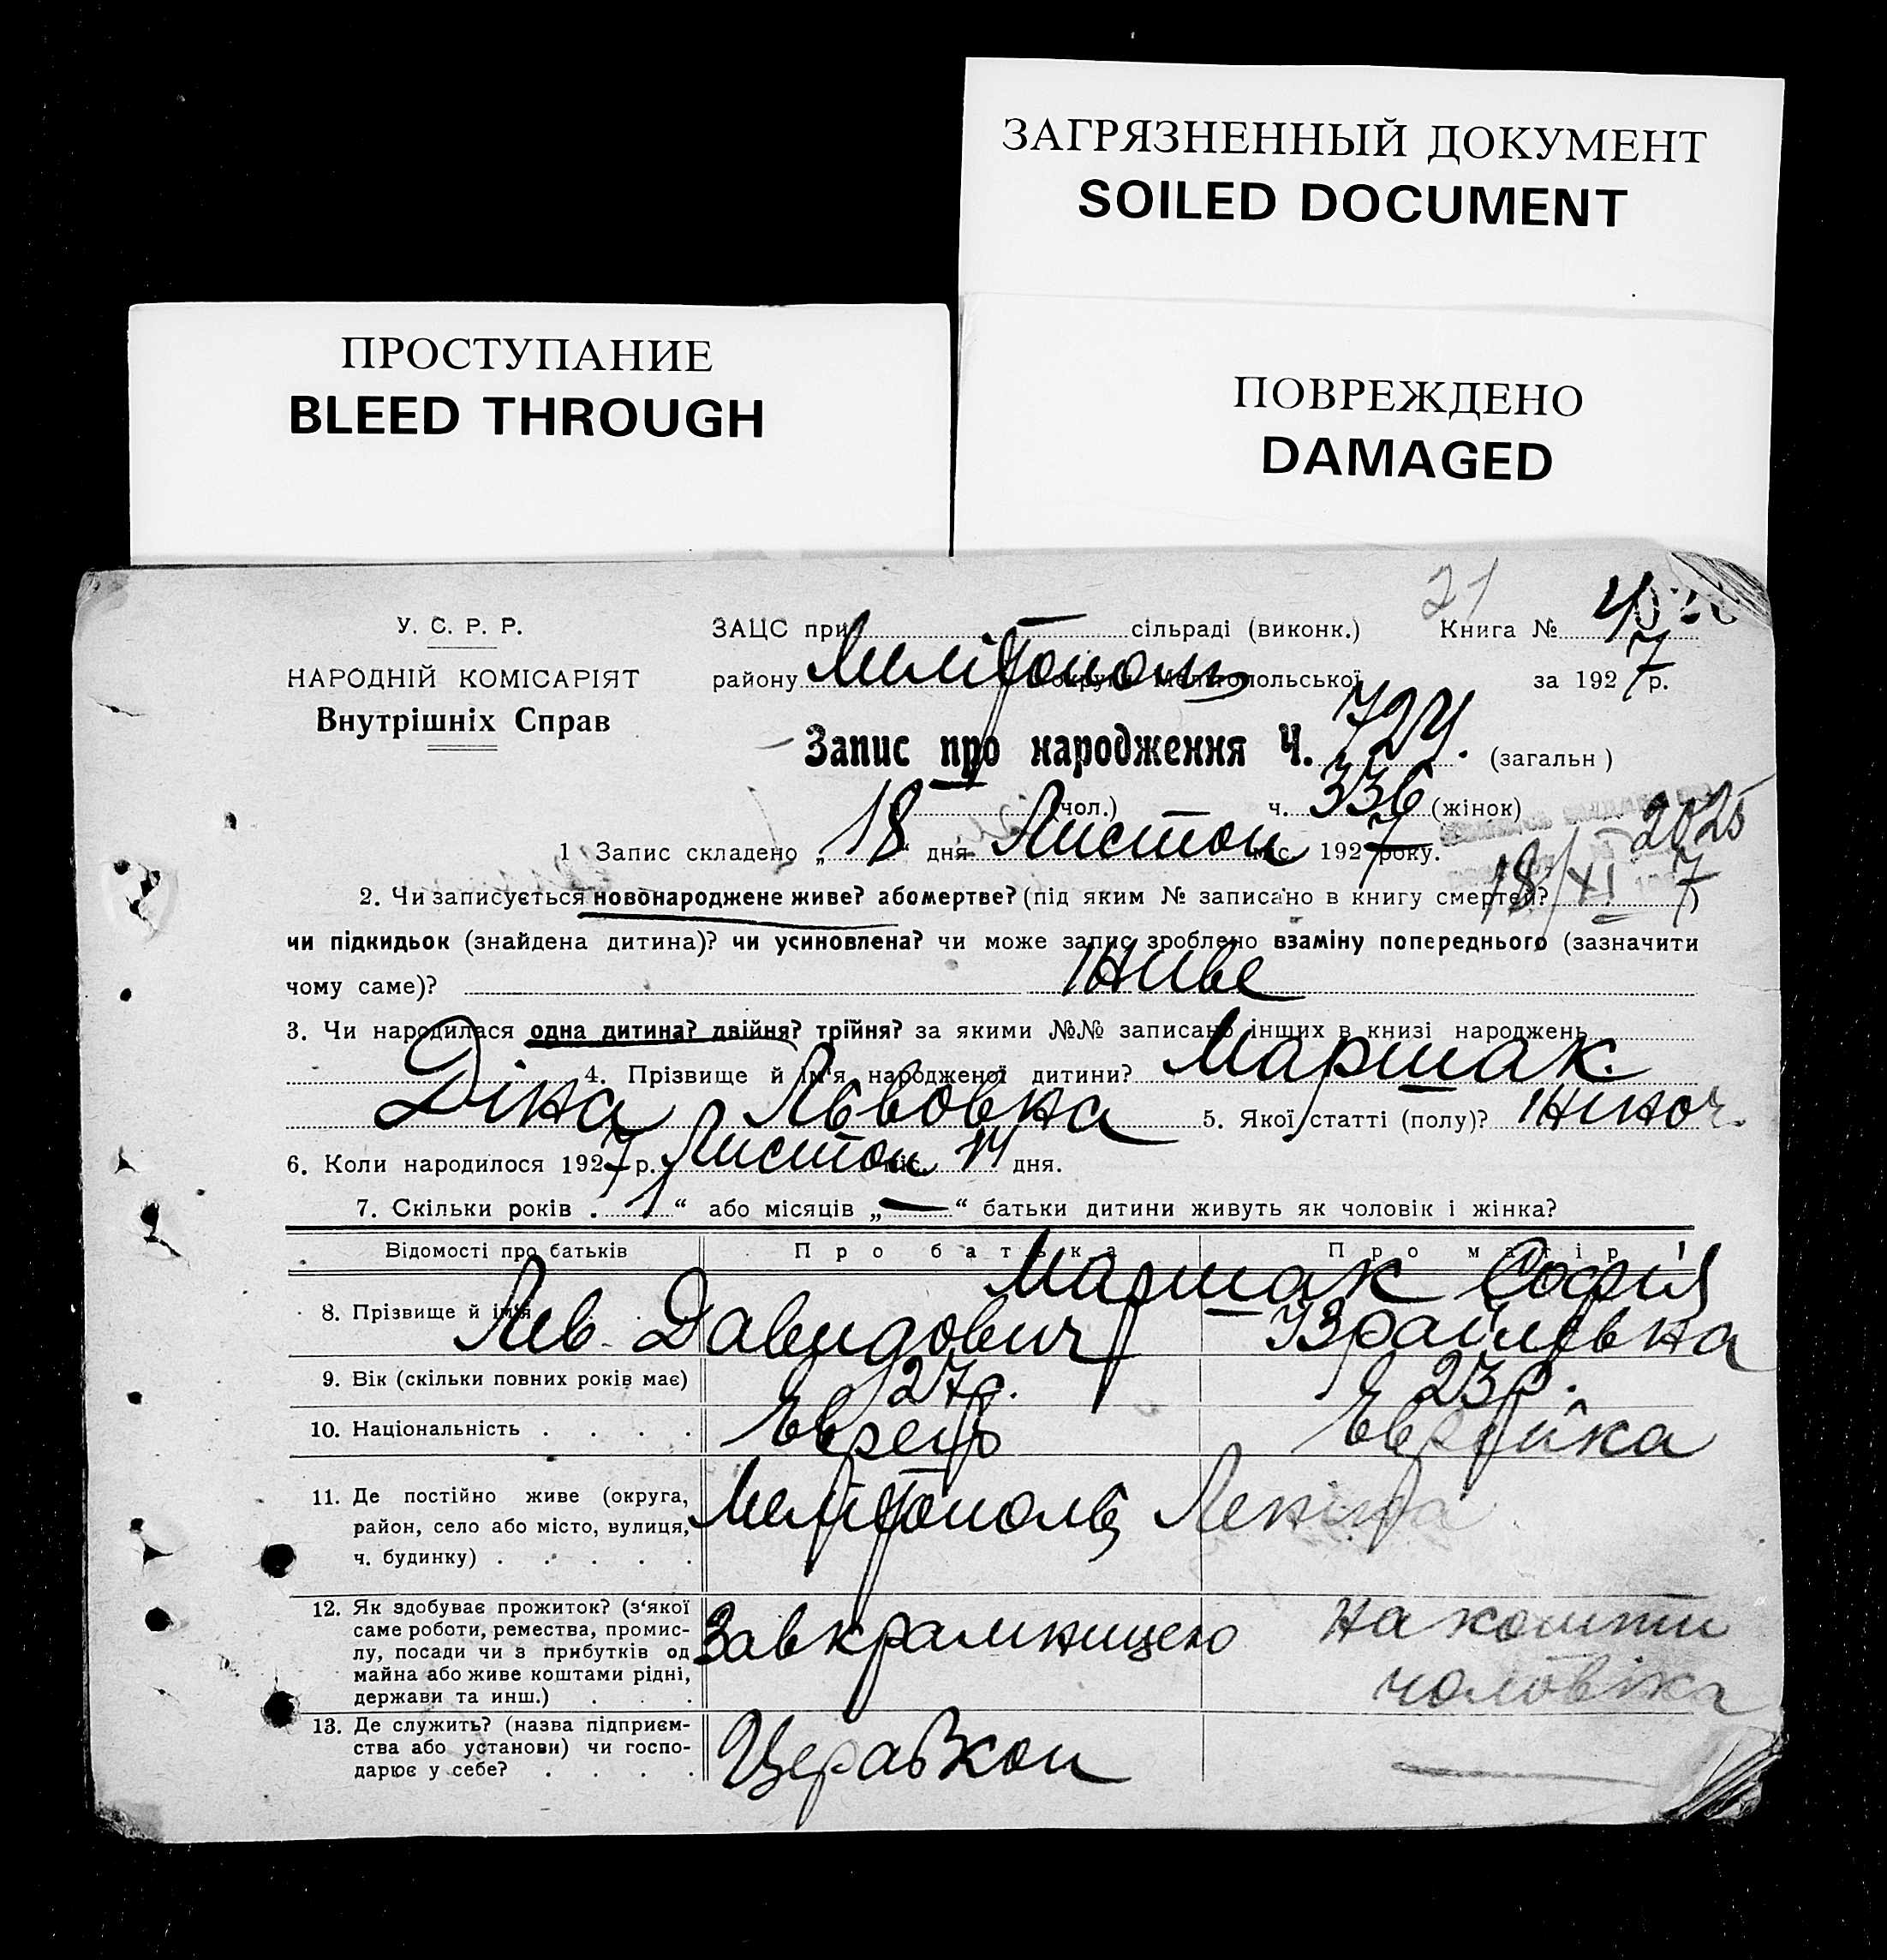 ЗАГРЯЗНЕННЫЙ ДОКУМЕНТ
SOILED DOCUMENT
ПРОСТУПАНИЕ
BLEED THROUGH
ПОВРЕЖДЕНО
DAMAGED
21
У. С. Р. Р.
НАРОДНІЙ КОМІСАРІЯТ
Внутрішніх Справ
ЗАЦС при сільраді (виконк.) Книга №
району Мелітополь округи Мелітопольської за 1927 р.
Запис про народження Ч. 724. (загальн)
(чол.) ч. 336 (жінок)
2025
1 Запис складено „18“ дня Листоп міс. 1927 року.
18/XI 7
2. Чи записується новонароджене живе? або мертве? (під яким № записано в книгу смертей?
чи підкидьок (знайдена дитина)? чи усиновлена? чи може запис зроблено взаміну попереднього (зазначити
чому саме)? Живе
3. Чи народилася одна дитина? двійня? трійня? за якими №№ записано інших в книзі народжень
4. Прізвище й ім'я народженої дитини? Маршак.
Діна Львовна 5. Якої статті (полу)? жіноч.
6. Коли народилося 1927 р. Листоп міс. 14 дня.
7. Скільки років „1“ або місяців „—“ батьки дитини живуть як чоловік і жінка?
Відомості про батьків Про батька Про матір
8. Прізвище й ім'я Маршак Софія
Лев Давидович Ізраїлевна
9. Вік (скільки повних років має) 27 р. 23 р.
10. Національність . . . . Еврей Еврейка
11. Де постійно живе (округа,
район, село або місто, вулиця,
ч. будинку) . . . . .
Мелітополь, Леніна
12. Як здобуває прожиток? (з'якої
саме роботи, ремества, промис-
лу, посади чи з прибутків од
майна або живе коштами рідні,
держави та инш.) . . .
Завкрамницею На кошти
чоловіка
13. Де служить? (назва підприєм-
ства або установи) чи госпо-
дарює у себе? . . . .
Церабкоп —